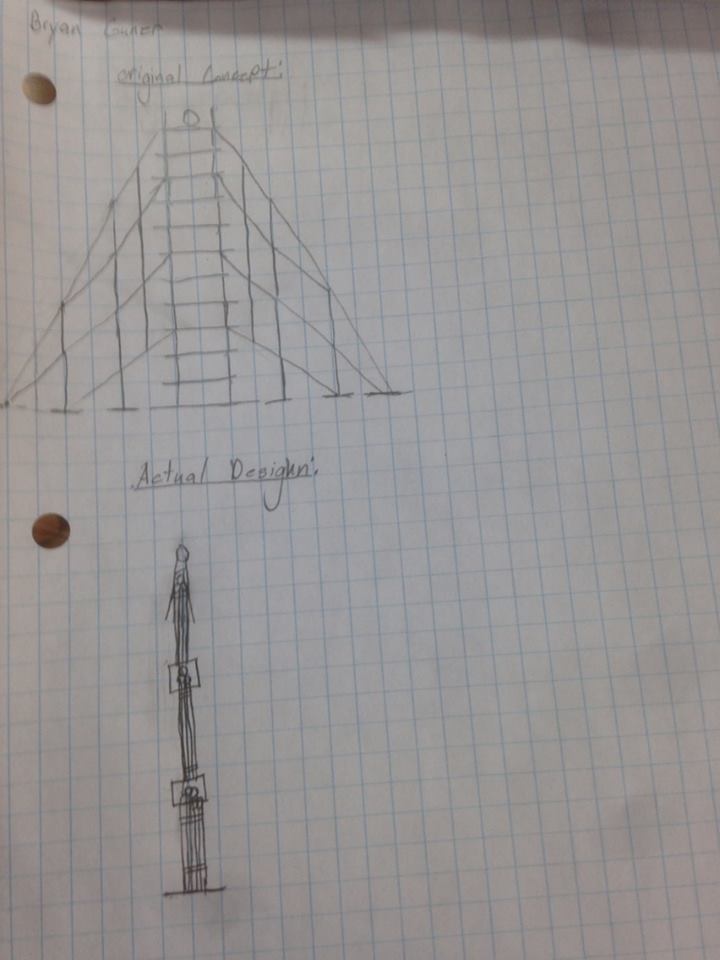 Bryan Guner
original Concept:
Actual Desighn: